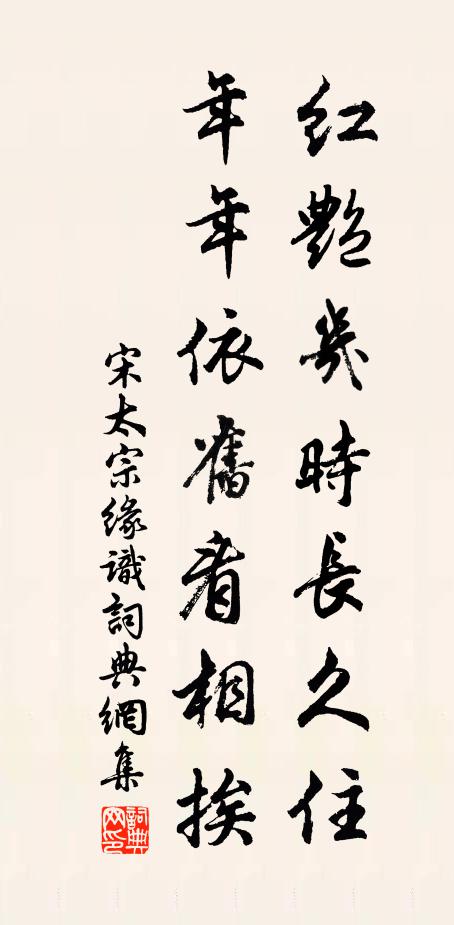 紅艷幾時長久住
年年依舊看相挨
宋太宗緣識詞典網集
詞典網印